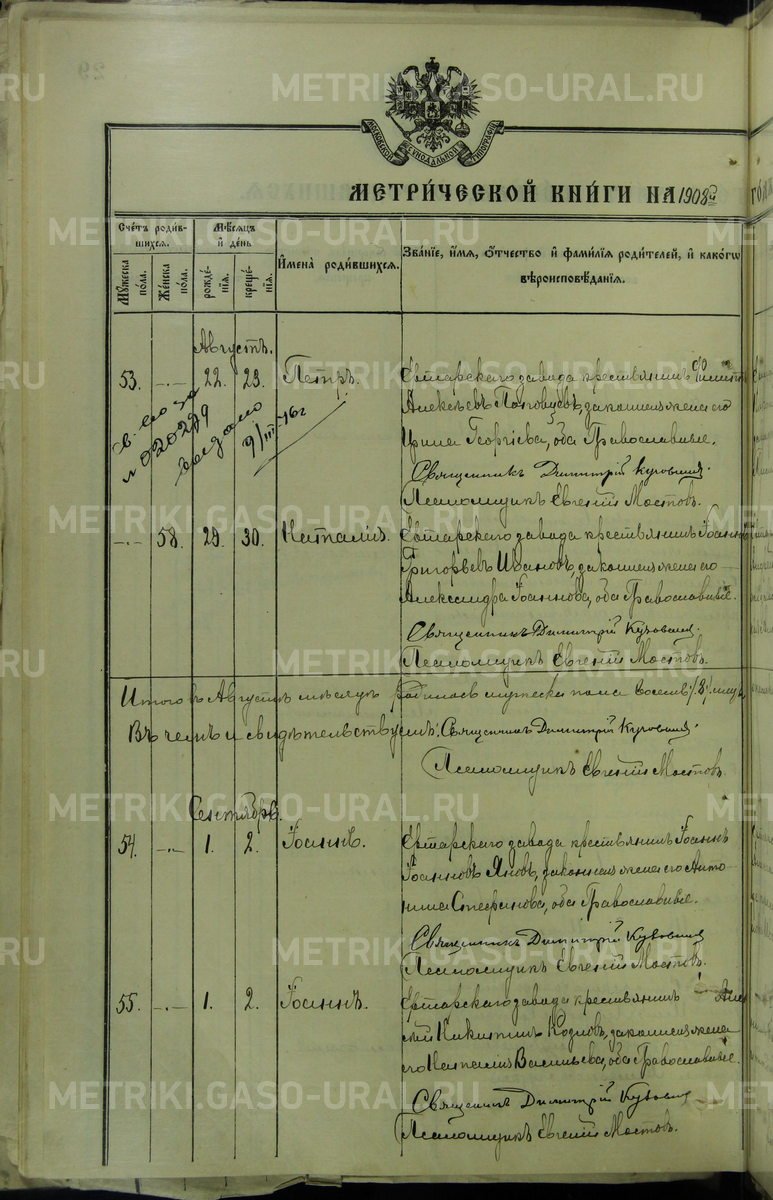 МОСКОВСКОЙ СѴНОДАЛЬНОЙ ТИПОГРАФІИ
МЕТРИ́ЧЕСКОЙ КНИ́ГИ НА 1908й
Сче́тъ роди́вшихсѧ.
Мꙋ́жеска по́ла.
Же́нска по́ла.
Мѣ́сѧцъ и҆ де́нь
рожде́нїѧ.
креще́нїѧ.
И҆мена̀ роди́вшихсѧ.
Зва́нїе, и҆́мѧ, ѻ҆́тчество и҆ фами́лїѧ роди́телей, и҆ како́гѡ
вѣроисповѣ́данїѧ.
Августъ.
53. -"- 22. 23. Петръ.
Ертарскаго завода крестьянинъ
Алексѣевъ законная жена его
Ирина Георгіева, оба Православные.
Священникъ Димитрій
Псаломщикъ Евгеній Мостовъ.
№ 020299
выдано
9/III-46 г
-"- 58. 29. 30. Наталія.
Ертарскаго завода крестьянинъ Іоаннъ
Григорьевъ Ивановъ, законная жена его
Александра Іоаннова, оба Православные.
Священникъ Димитрій
Псаломщикъ Евгеній Мостовъ.
Итого въ Августѣ мѣсяцѣ родилось мужеска пола восемь /8/
Въ чемъ и свидѣтельствуемъ: Священникъ Димитрій
Псаломщикъ Евгеній Мостовъ.
Сентябрь.
54. -"- 1. 2. Іоаннъ.
Ертарскаго завода крестьянинъ Іоаннъ
Іоанновъ Яновъ, законная жена его Анто
нина Стефанова, оба Православные.
Священникъ Димитрій
Псаломщикъ Евгеній Мостовъ.
55. -"- 1. 2. Іоаннъ.
Ертарскаго завода крестьянинъ Алек
сѣй Никитинъ законная жена
его Наталія Васильева, оба Православные.
Священникъ Димитрій
Псаломщикъ Евгеній Мостовъ.
METRIKI.GASO-URAL.RU